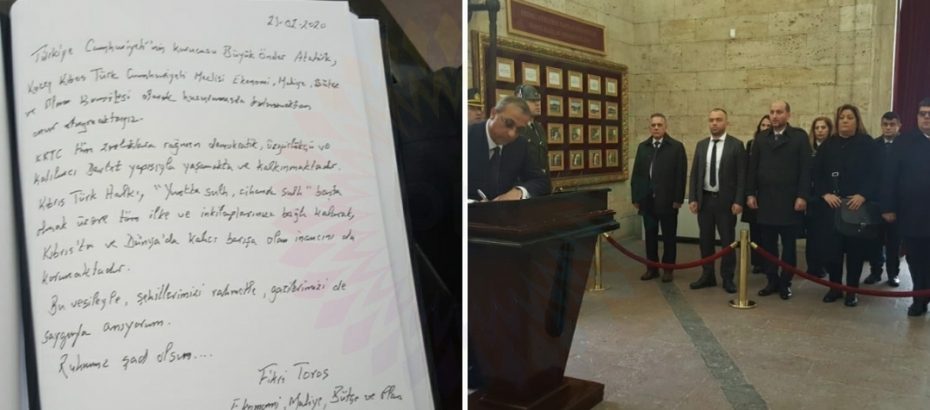 23-01-2020
Türkiye Cumhuriyeti'nin kurucusu Büyük Önder Atatürk,
Kuzey Kıbrıs Türk Cumhuriyeti Meclisi Ekonomi, Maliye, Bütçe
ve Plan Komitesi olarak huzurlarınızda bulunmaktan
onur duymaktayız.
KKTC tüm zorluklara rağmen demokratik, özgürlükçü ve
katılımcı Devlet yapısıyla yaşamakta ve kalkınmaktadır.
Kıbrıs Türk Halkı, "Yurtta sulh, cihanda sulh" başta
olmak üzere tüm ilke ve inkilaplarınıza bağlı kalarak,
Kıbrıs'ta ve Dünya'da kalıcı barışa olan inancını da
korumaktadır.
Bu vesileyle, şehitlerimizi rahmetle, gazilerimizi de
saygıyla anıyorum.
Ruhunuz şad olsun....
Fikri Toros
Ekonomi, Maliye, Bütçe ve Plan